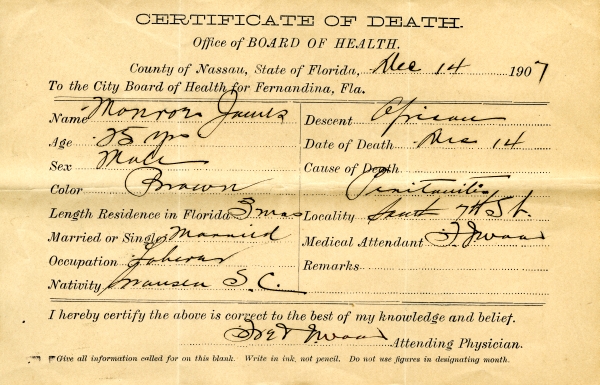 CERTIFICATE OF DEATH.
Office of BOARD OF HEALTH.
County of Nassau, State of Florida, Dec 14 1907
To the City Board of Health for Fernandina, Fla.
Name Monroe James
Descent African
Age 25 yrs
Date of Death Dec 14
Sex Male
Cause of Death
Color Brown
Peritonitis
Length Residence in Florida 3 mos
Locality South 7th St.
Married or Single Married
Medical Attendant
Occupation Laborer
Remarks
Nativity S.C.
I hereby certify the above is correct to the best of my knowledge and belief.
Attending Physician.
Give all information called for on this blank. Write in ink, not pencil. Do not use figures in designating month.